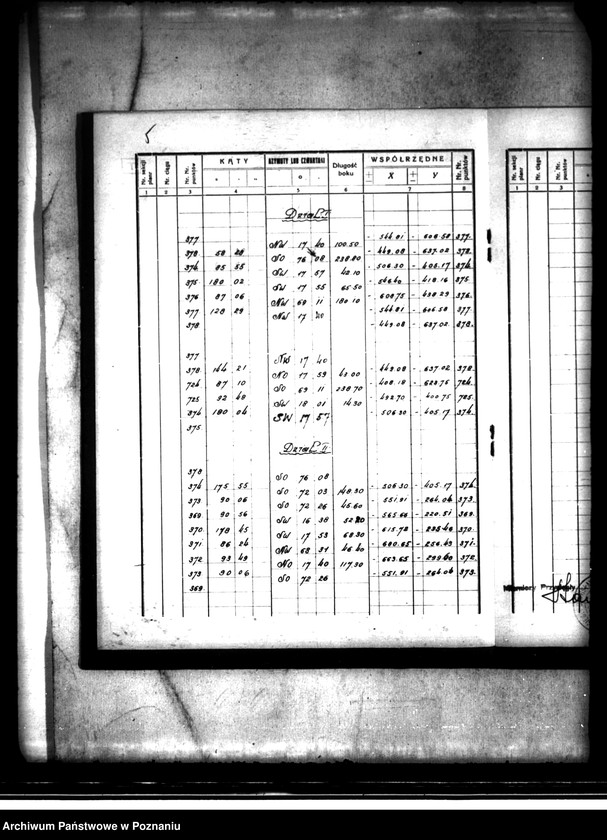 5
Nr. sekcji planu | Nr. ciągu | Nr. Nr. punktów | KĄTY | AZYMUTY LUB CZWARTAKI | Długość boku | WSPÓŁRZĘDNE | Nr. Nr. punktów
° ' " | o ' | ± X | ± Y
1 2 3 4 5 6 7 8
Dział I
377 - 544.81 - 606.58 377.
NW 17 40 100.50
378 58 28 - 449.08 - 637.02 378.
SO 76 08 238.80
374 85 55 - 506.30 - 405.17 374.
SW 17 57 42.10
375 180 02 - 546.40 - 418.16 375
SW 17 55 65.50
376 87 06 - 608.75 - 438.29 376.
NW 69 11 180.10
377 128 29 - 544.81 - 606.58 377.
NW 17 40
378 - 449.08 - 637.02 378.
377
NW 17 40
378 144 21 - 449.08 - 637.02 378
NO 17 59 43.00
724 87 10 - 408.18 - 623.76 724.
SO 69 11 238.70
725 92 48 - 492.70 - 400.75 725.
SW 18 01 14.30
374 180 04 - 506.30 - 405.17 374.
SW 17 57
375
Dział II
378
SO 76 08
374 175 55 - 506.30 - 405.17 374.
SO 72 03 148.30
373 90 06 - 551.91 - 264.06 373.
SO 72 26 45.60
369 90 56 - 565.66 - 220.51 369.
SW 16 38 52.20
370 178 45 - 615.72 - 235.48 370.
SW 17 53 68.30
371 86 24 - 680.65 - 256.43 371.
NW 68 31 46.40
372 93 49 - 663.65 - 299.60 372.
NO 17 40 117.30
373 90 06 - 551.91 - 264.06 373.
SO 72 26
369
Nr. sekcji planu | Nr. ciągu | Nr. Nr. punktów
1 2 3
Mierniczy Przysięgły
Archiwum Państwowe w Poznaniu